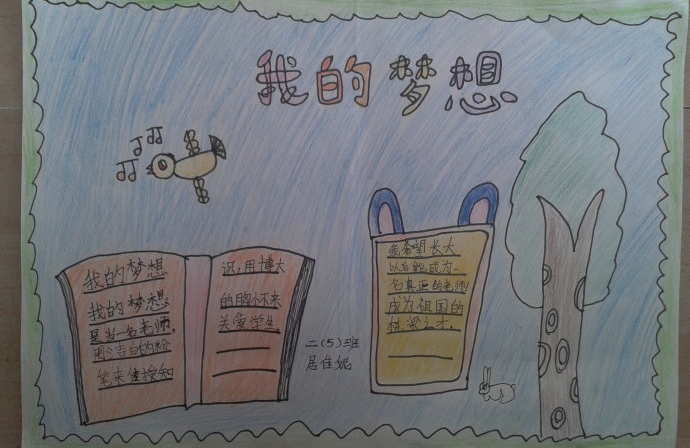 我的梦想
我的梦想
我的梦想
是当一名老师,
用洁白的粉
笔来传授知
识,用博大
的胸怀来
关爱学生
我希望长大
以后能成为一
名真正的老师
成为祖国的
栋梁之才.
二(5)班
居佳妮